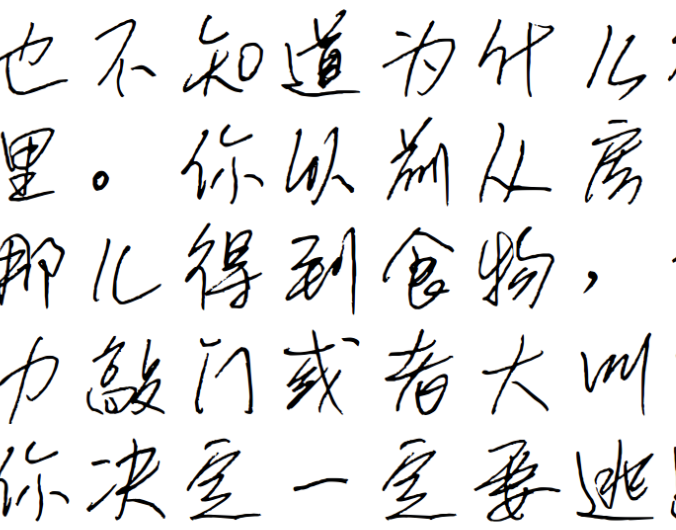 也不知道为什么
里。你以前从房
那儿得到食物，
力敲门或者大叫
你决定一定要逃